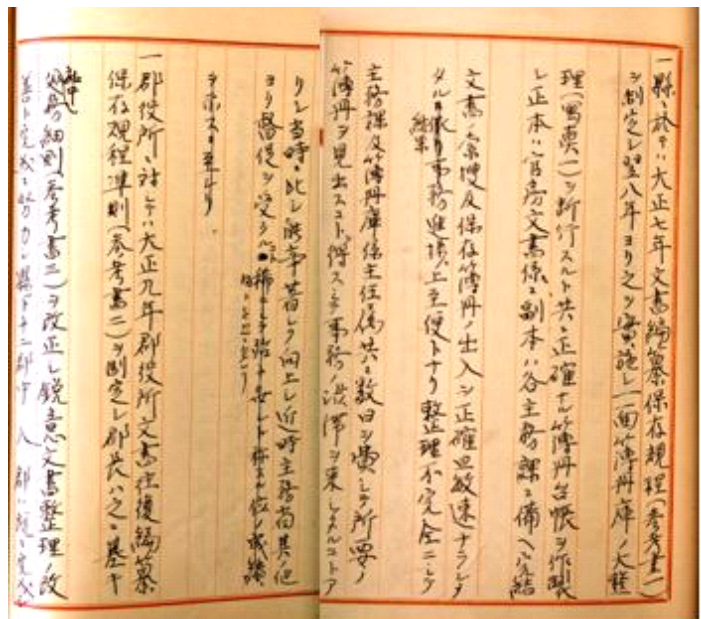 一縣ニ於テハ大正七年文書編纂保存規程(参考書一)
ヲ制定シ翌八年ヨリ之ヲ實施シ一面簿冊庫ノ大整
理(写真一)ヲ断行スルト共ニ正確ナル簿冊台帳ヲ作製
シ正本ハ官房文書係ニ副本ハ各主務課ニ備ヘ完結
文書ノ索捜及保存簿冊ノ出入ヲ正確且敏速ナラシメ
タル結果事務進捗上至便トナリ整理不完全ニシテ
主務課及簿冊庫係主任偶共ニ数日ヲ費シテ所要ノ
簿冊ヲ見出スコト得スシテ事務ノ渋滞ヲ来シタルコトア
リシ当時ニ比シ能率著シク向上シ近時主務省其ノ他
ヨリ督促ヲ受クル稀ニシテ殆ト安シト称スル位ノ成績
ヲ示スニ至レリ
一郡役所ニ対シテハ大正九年郡役所文書往復編纂
保存規程準則(参考書二)ヲ制定シ郡長ハ之ニ基キ
処務細則(参考書三)ヲ改正シ鋭意文書整理ノ改
善ト完成ニ努力シ縣下十二郡中八郡ハ既ニ完成